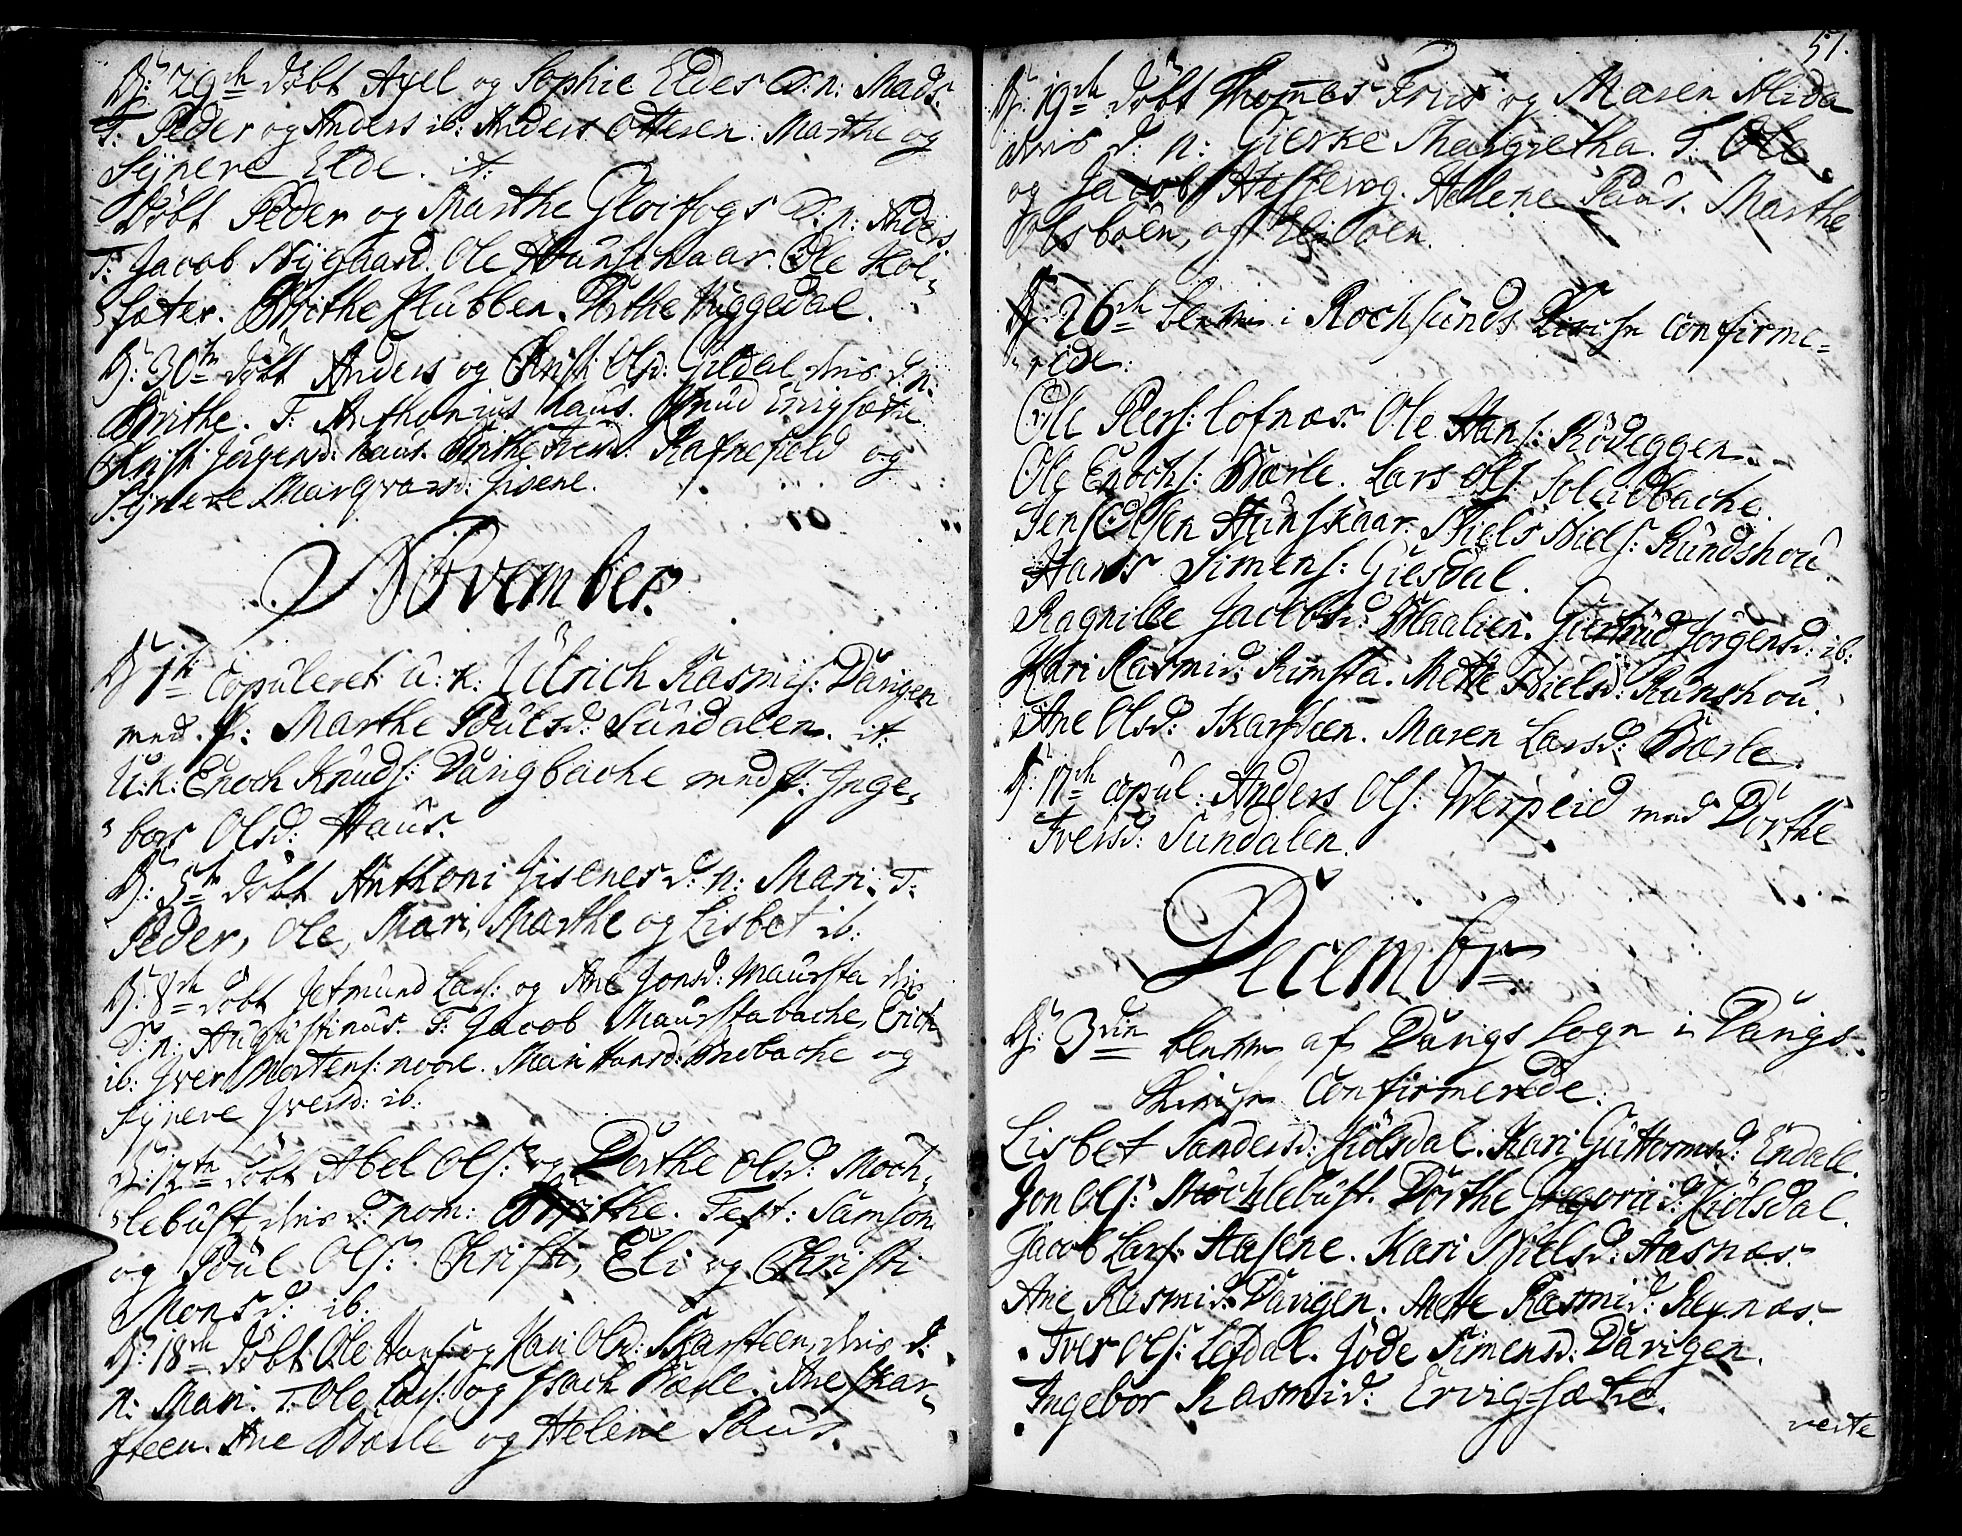 D: 29de döbt Axel og Sophie Eldes D: n: Mads.
T: Peder og Anders ib: Anders Ottesen. Marthe og
Syneve Elde. it:
Döbt Peder og Marthe D: n: Anders
T: Jacob Nygaard. Ole Hunschaar. Ole Hol-
sæter. Brithe Clubben. Dorthe Huggedal.
D: 30te döbt Anders og Christi Olsd: Gildal d: n:
Brithe. T: Anthonius Haus. Knud Errigsætre
Christi Jörgensd: Haus. Rafnefield og
Synneve Marqvarsd: Hisene.
November.
D: 1te Copuleret U: k: Ulrich Rasmis: Davigen
med. p: Marthe Poulsd: Sundalen. it
U: k: Enoch Knuds: Davigbache med p: Inge-
bor Olsd: Haus.
D: 5te döbt Anthoni Hisenes d: n: Mari. T:
Peder, Ole, Mari, Marthe og Lisbet ib:
D: 8de döbt Jetmund Lars: og Ane Jonsd: Maursta
D: n: Augustinus. T: Jacob Maurstabache, Erich
ib: Iver Mortens: nore. Mari Hansd: og
Syneve Iversd: ib:
D: 12te döbt Abel Ols: og Dorthe Olsd: Moch-
lebust d: nom: Brithe. Test: Samson
og Poul Ols: Christi, Eli og Christi
Monsd: ib.
D: 18de döbt Ole Hans: og Kari Olsd: Skarsteen, d:
n: Mari. T: Ole Lars: og Isach Bærle. Ane Skar-
steen. Ane Bærle og Helene Paus.
51.
D: 19de döbt Thomes Friis og Maren Alida
d: n: Gierke Margretha. T. Ole
og Jacob Hessevog. Hellene Paus. Marthe
Holsböen, og Eliböen.
D: 26de blevne i Rochsunds Kirche confirme-
rede:
Ole Peers: Lofnæs. Ole Hans: Rödeggen.
Ole Enochs: Bærle. Lars Ols: Soleidbache.
Jens Olsen Hunskaar. Niels Niels: Rundshou.
Hans Simens: Giesdal.
Ragnille Jacobsd: Maalien. Giertrud Jörgensd: ib:
Kari Rasmisd: Rimsta. Mette Nielsd: Runshou.
Ane Olsd: Skarsteen. Maren Larsd: Bærle.
D: 17de copul: Anders Ols: Werpeid med Dorthe
Iversd: Sundalen.
December
D: 3die blevne af Davigs Sogn i Davigs
Kirche Confirmerede.
Lisbet Sandersd: Hiölsdal. Kari Guttormsd: Endal.
Jon Ols: Mochlebust. Dorthe Gregorid: Hiölsdal.
Jacob Lars: Aasene. Kari Nielsd: Aasnæs.
Ane Rasmisd: Davigen. Mette Rasmisd: Rexnæs.
Iver Ols: Lefdal. Jöde Simensd: Davigen.
Ingebor Rasmisd: Ervig-sætre.
verte